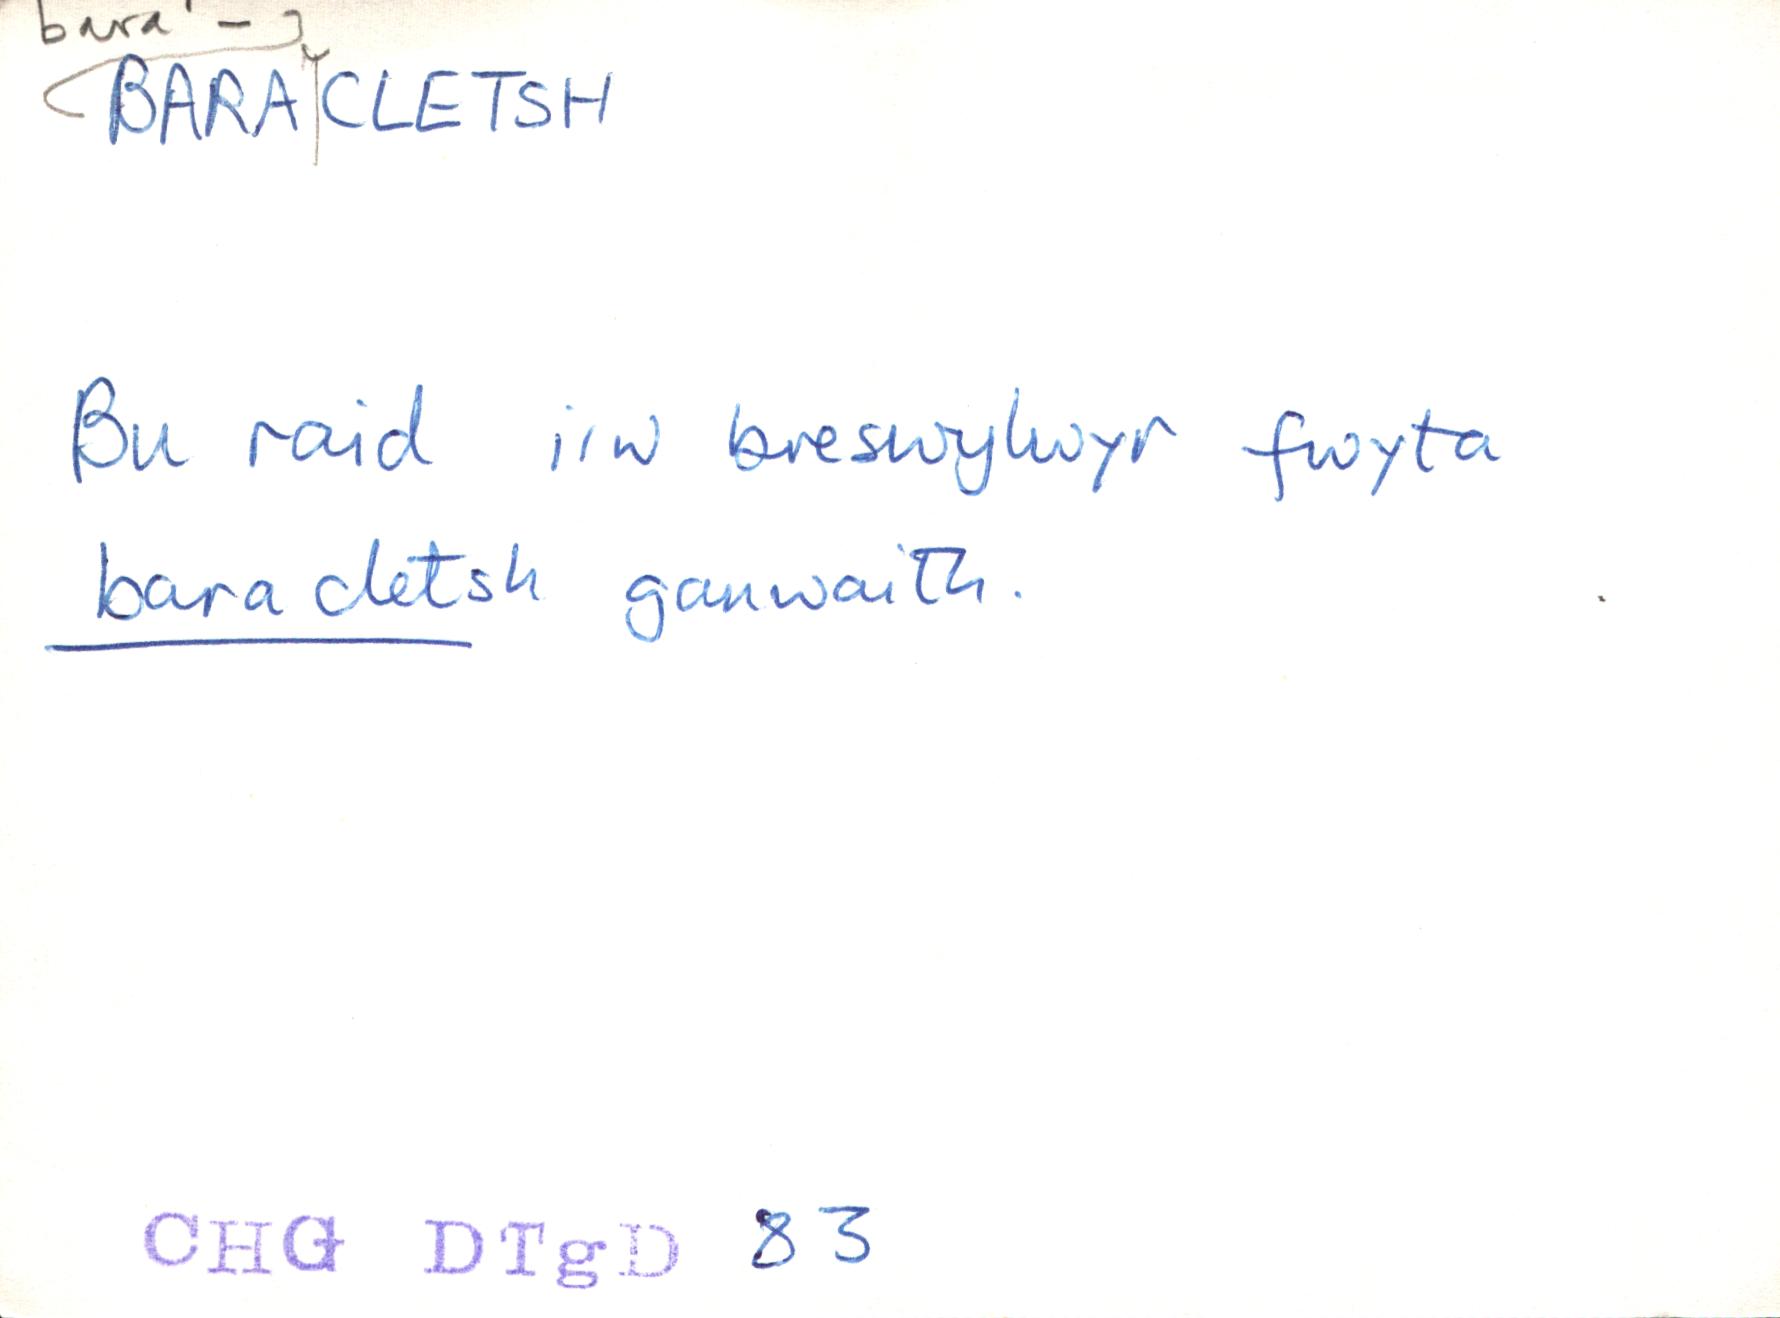 bara' -
BARA|CLETSH
Bu raid i'w breswylwyr fwyta
bara cletsh ganwaith.
CHG DTgD 83